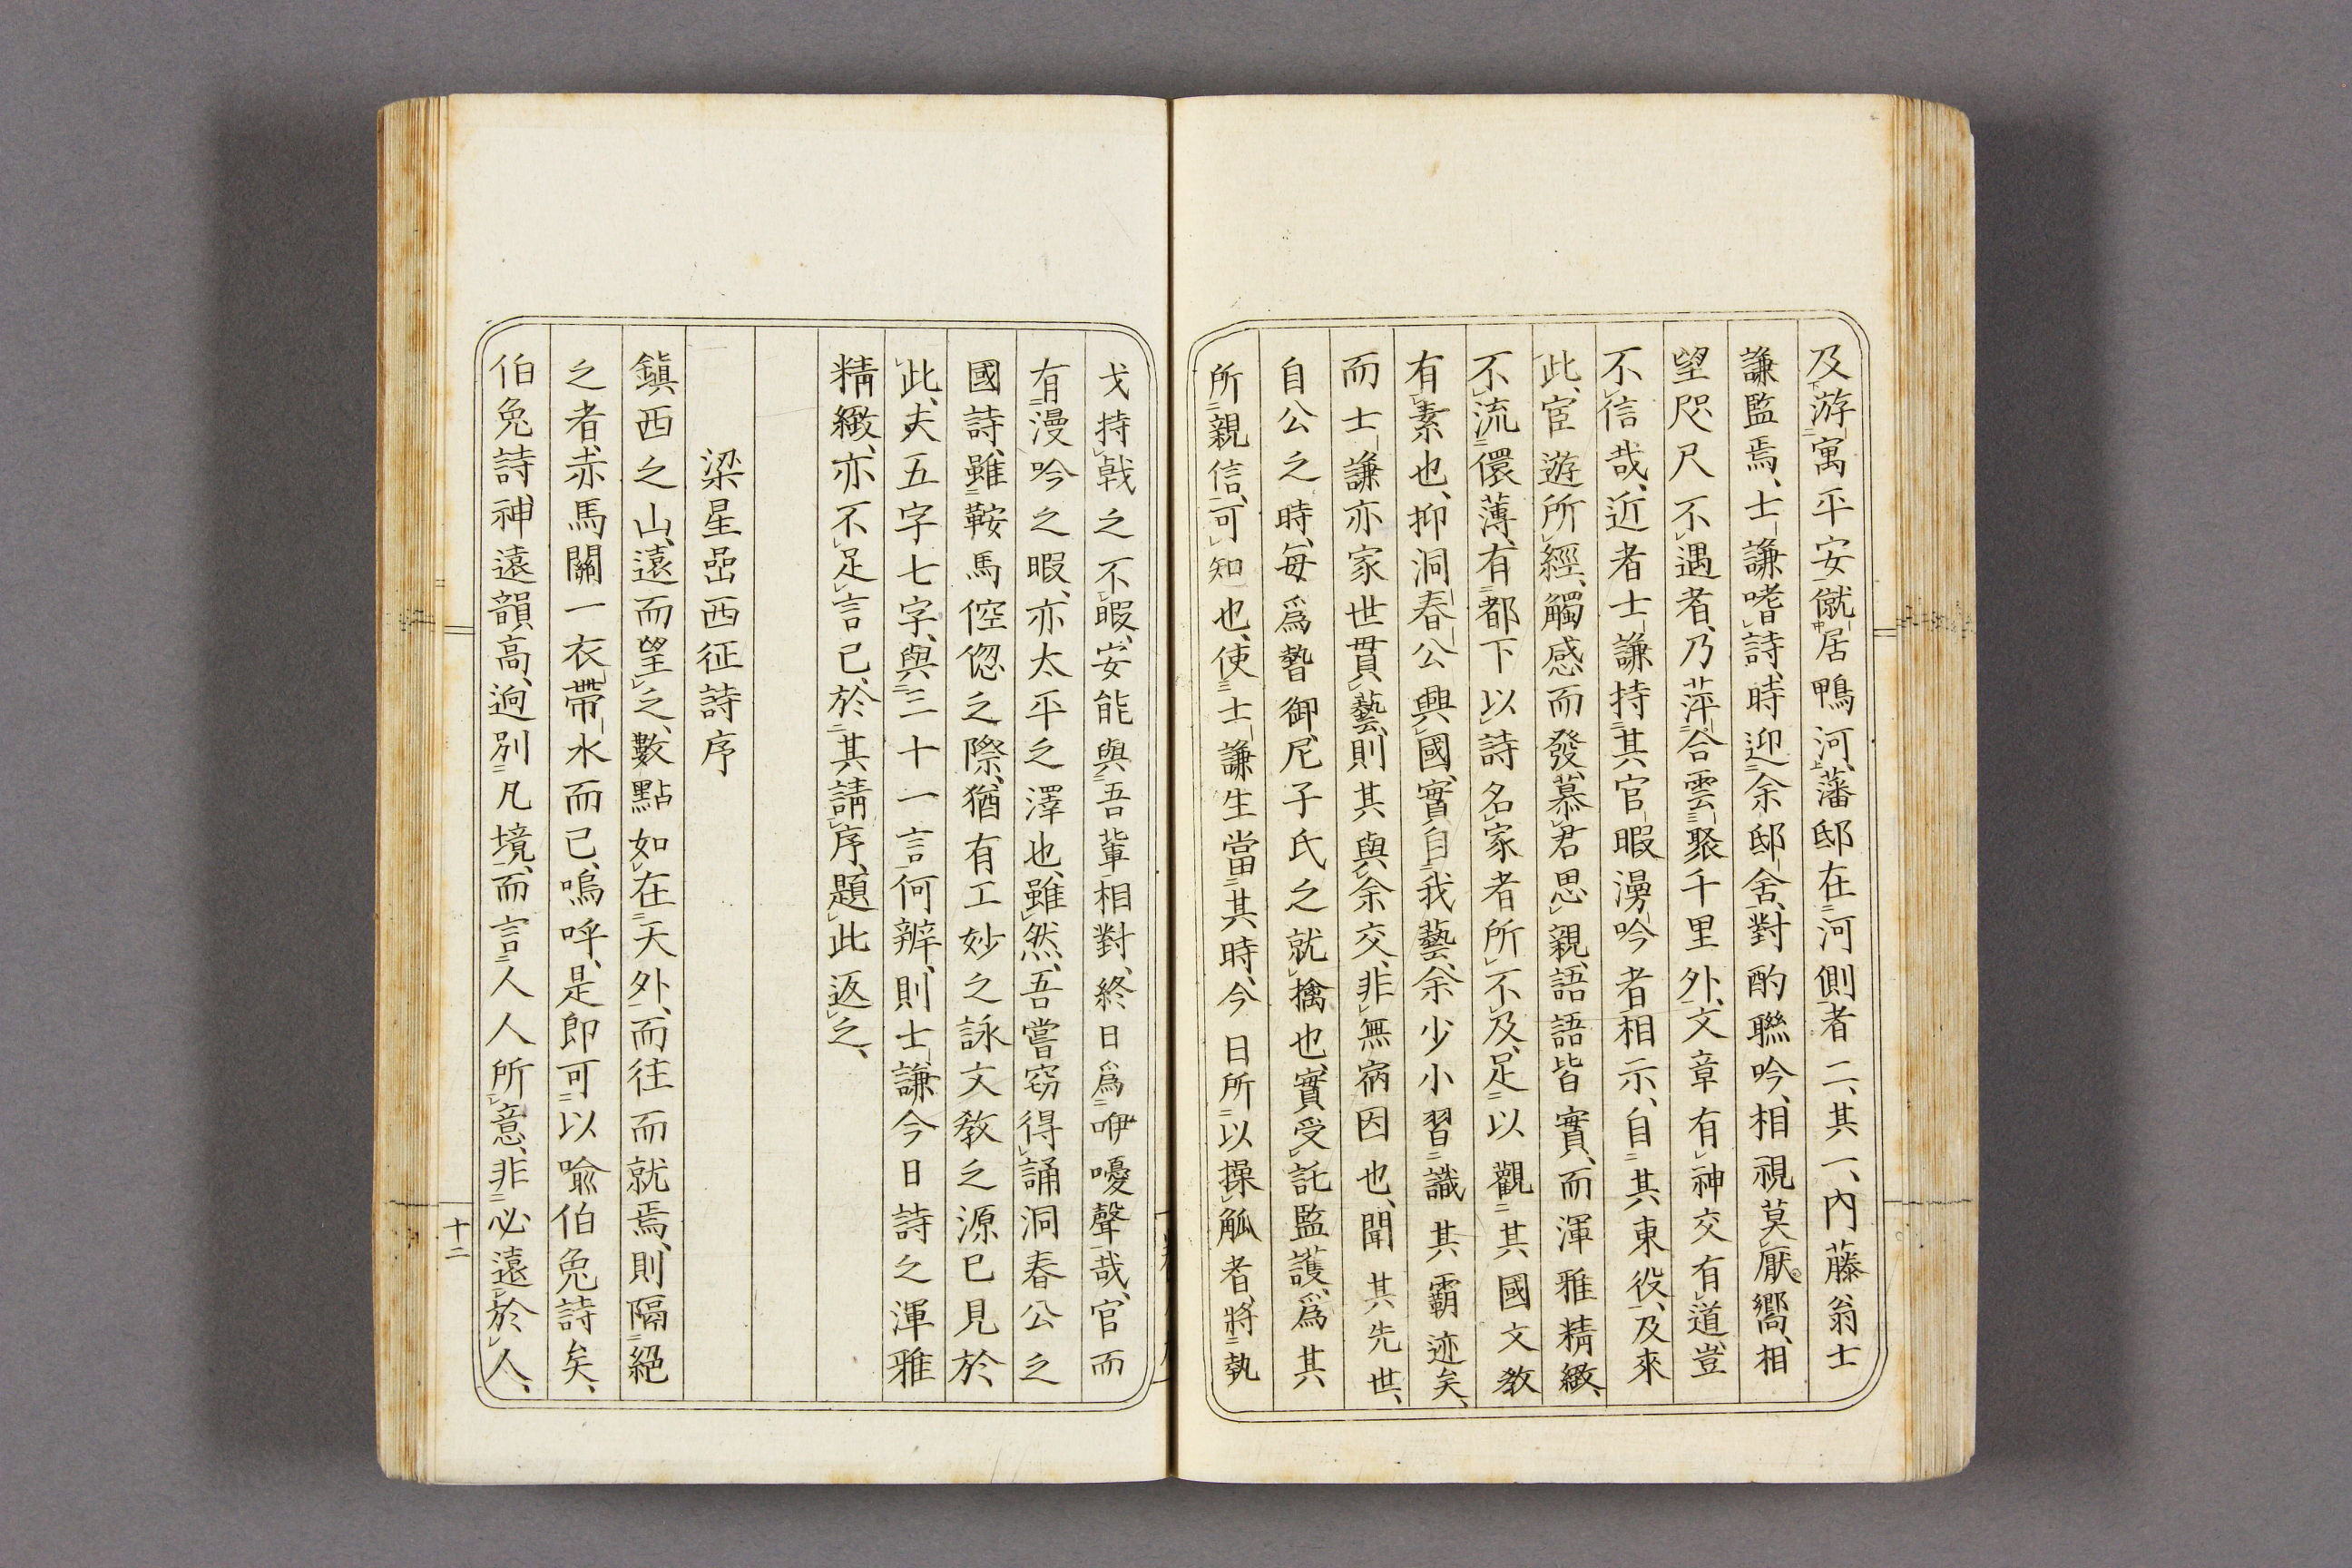 及游寓平安僦居鴨河、藩邸在河側者二、其一、內藤翁士
謙監焉、士謙嗜詩、時迎余邸舍、對酌聯吟、相視莫厭、嚮相
望咫尺不遇者、乃萍合雲聚千里外、文章有神交有道、豈
不信哉、近者士謙持其官暇漫吟者相示、自其東役、及來
此、宦遊所經、觸感而發、慕君思親、語語皆實、而渾雅精緻、
不流儇薄、有都下以詩名家者所不及、足以觀其國文敎
有素也、抑洞春公興國、實自我藝、余少小習識其霸迹矣、
而士謙亦家世貫藝、則其與余交、非無宿因也、聞其先世、
自公之時、每爲暬御、尼子氏之就擒也、實受託監護、爲其
所親信、可知也、使士謙生當其時、今日所以操觚者、將執
戈持戟之不暇、安能與吾輩相對、終日爲咿嚘聲哉、官而
有漫吟之暇、亦太平之澤也、雖然、吾嘗窃得誦洞春公之
國詩、雖鞍馬倥偬之際、猶有工妙之詠文敎之源已見於
此、夫五字七字、與三十一言何辨、則士謙今日詩之渾雅
精緻、亦不足言已、於其請序、題此返之、
梁星嵒西征詩序
鎭西之山、遠而望之、數點如在天外、而往而就焉、則隔絕
之者、赤馬關一衣帶水而已、嗚呼、是卽可以喩伯兔詩矣、
伯兔詩神遠韻高、逈別凡境、而言人人所意、非必遠於人、
十二